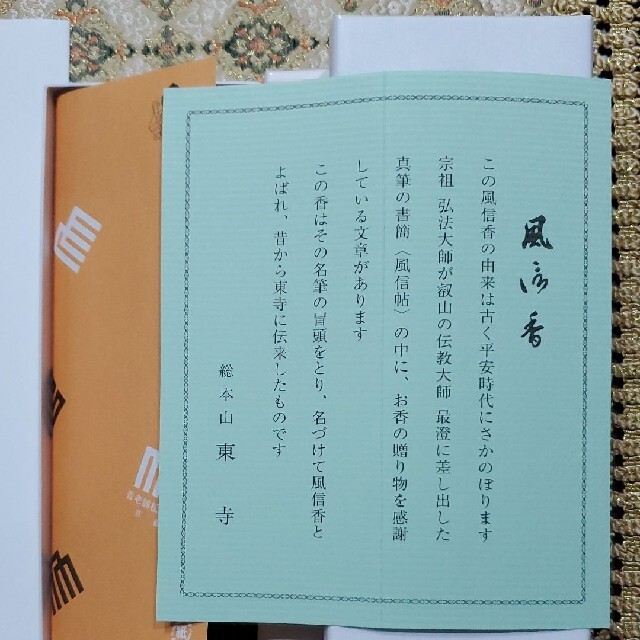 風信香
この風信香の由来は古く平安時代にさかのぼります
宗祖 弘法大師が叡山の伝教大師 最澄に差し出した
真筆の書簡〈風信帖〉の中に、お香の贈り物を感謝
している文章があります
この香はその名筆の冒頭をとり、名づけて風信香と
よばれ、昔から東寺に伝来したものです
総本山 東寺